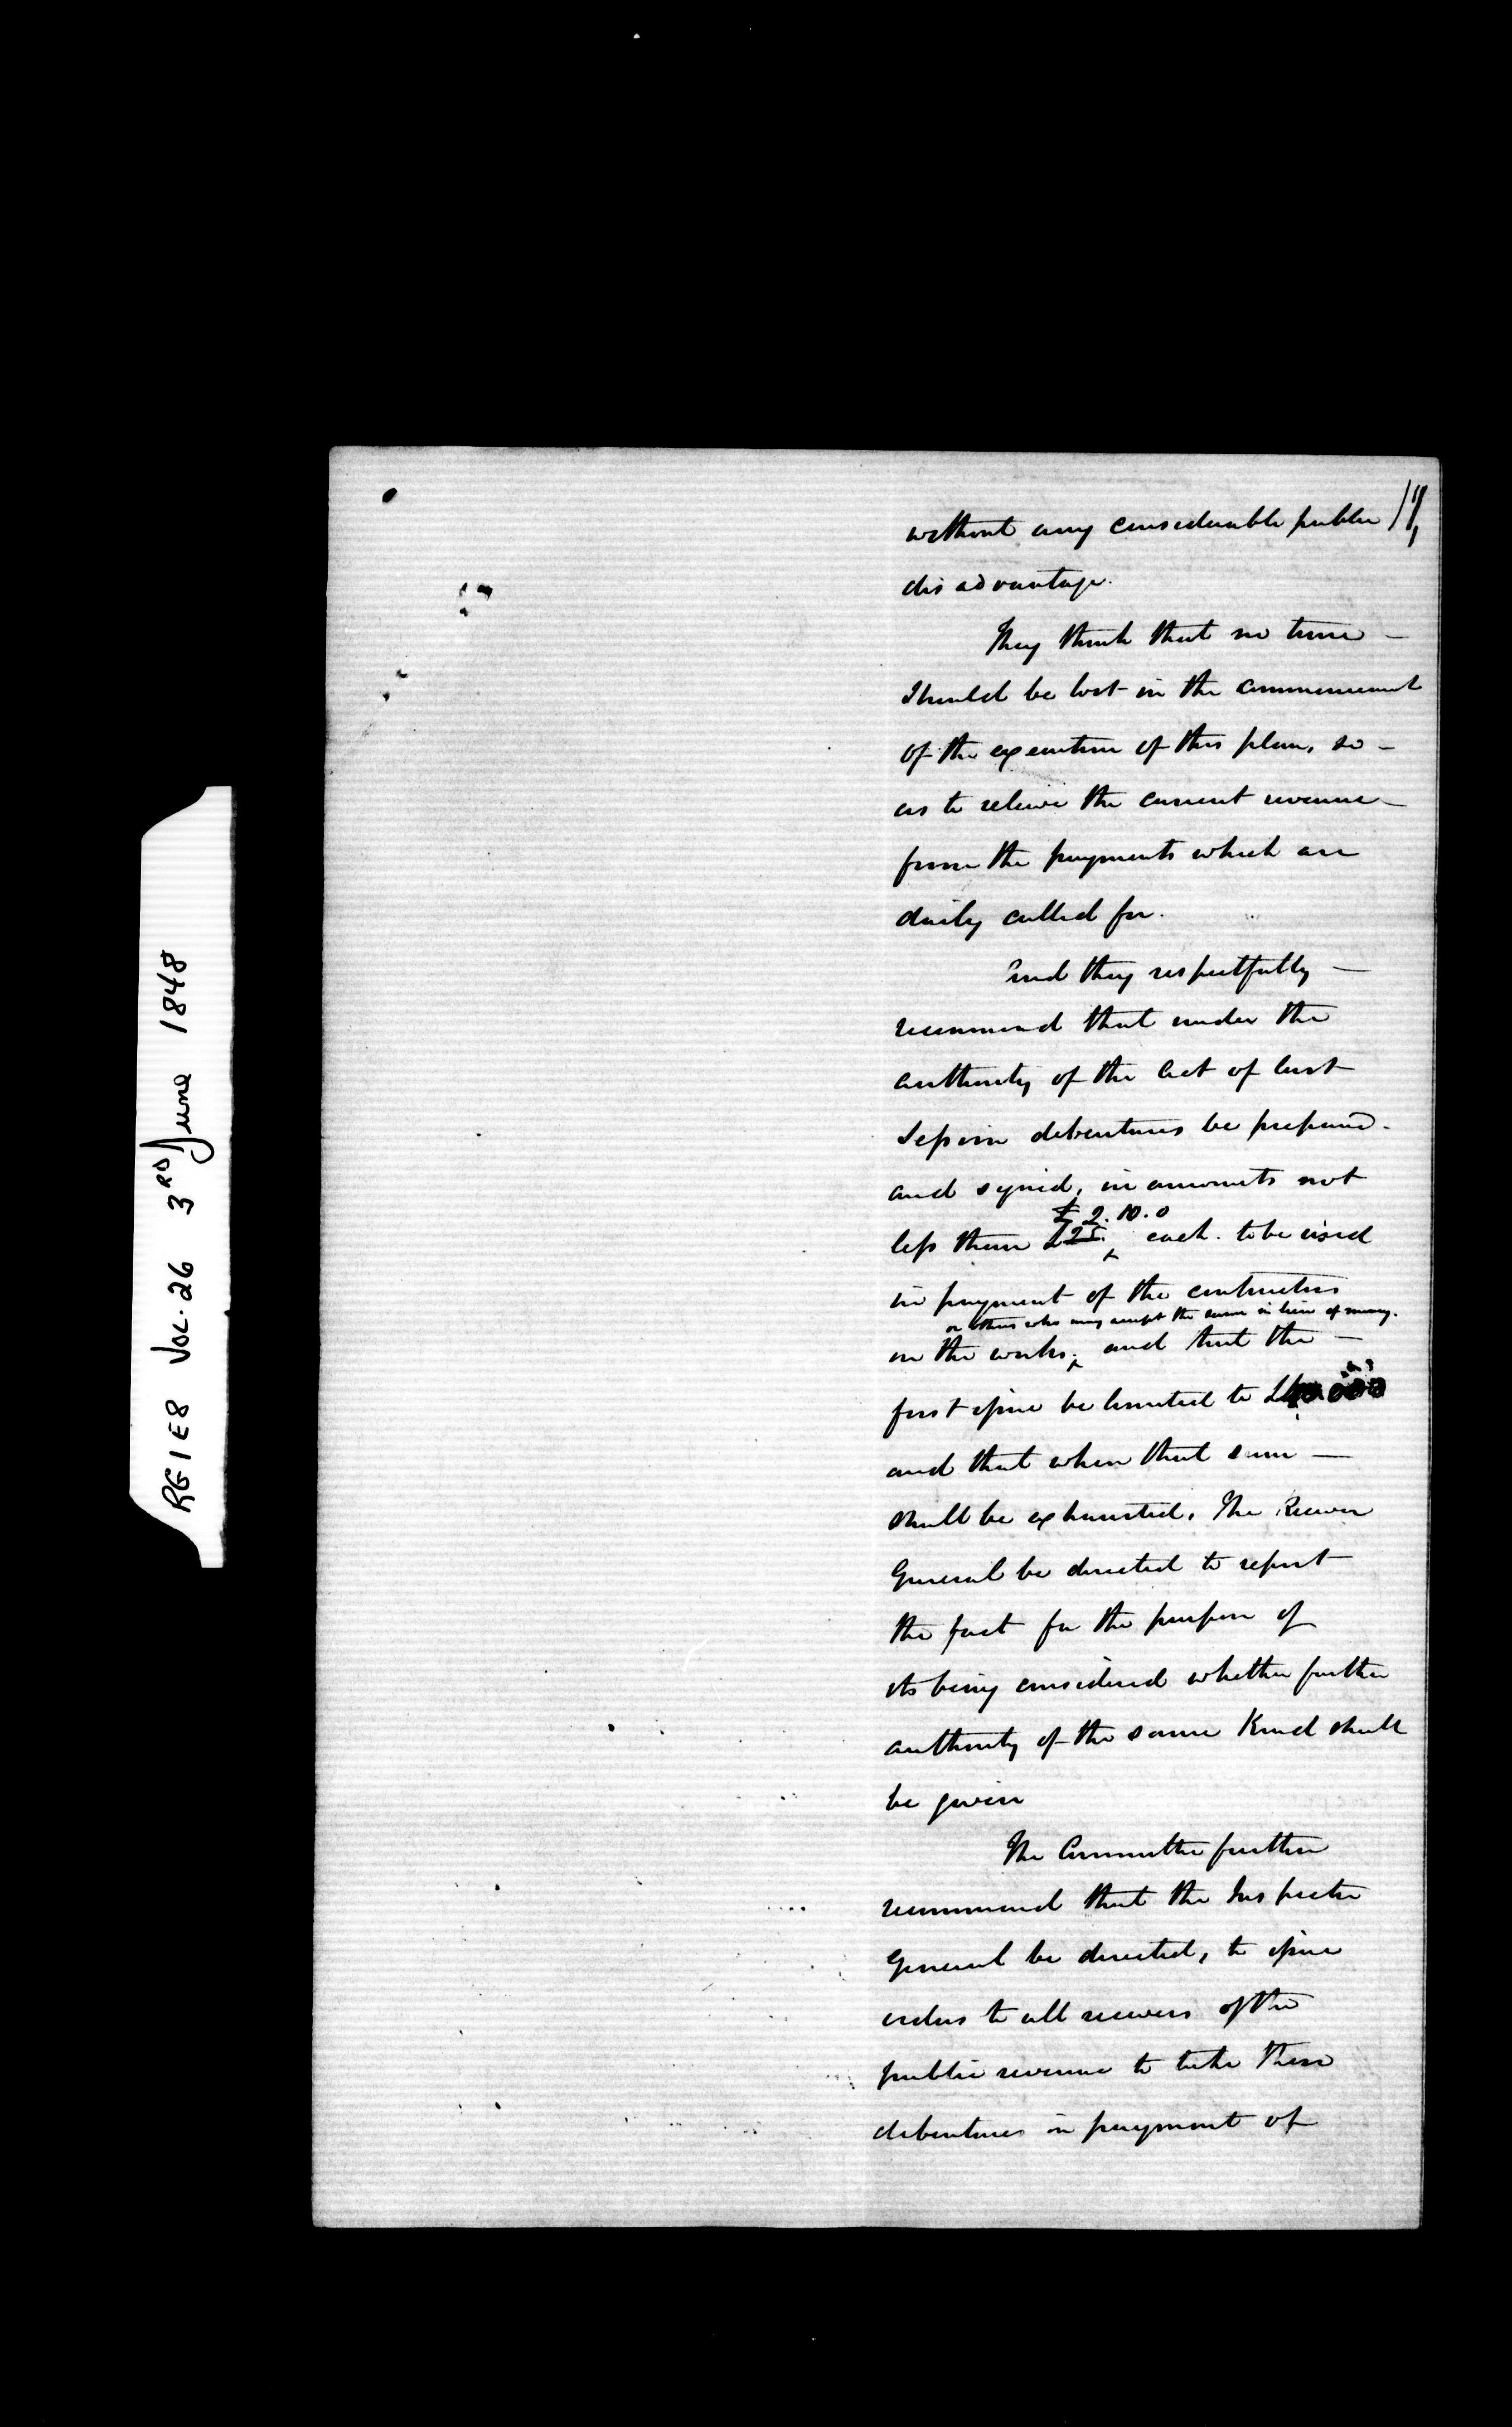 RG1E8 VOL. 26 3RD June 1848
without any considerable public
disadvantage.
They think that no time –
should be lost in the commencement
of the execution of this plan, so –
as to relieve the current revenue –
from the payments which are
daily called for.
And they respectfully –
recommend that under the
authority of the Act of last
Session debentures be prepared
and signed, in amounts not
£2.10.0
less than £25. each. to be issued
in payment of the contractors
or others who may accept the same in lieu of money.
on the works, and that the –
first issue be limited to
and that when that sum –
shall be exhausted, the Receiver
General be directed to report
the fact for the purpose of
its being considered whether further
authority of the same Kind shall
be given
The Committee further
recommend that the Inspector
General be directed, to issue
orders to all receivers of the
public revenue to take these
debentures in payment of